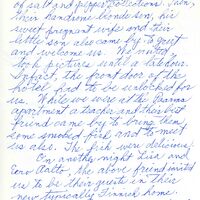 of salt and pepper collections. Then,
their handsome blonde son, his
sweet pregnant wife and their
little son also came by to greet
and welcome us. We visited,
took pictures until a late hour.
In fact, the front door of the
hotel had to be unlocked for
us. While we were at the
apartment a teacher and they best
friend came by to bring them
some smoked fish and to meet
us also. The fish were delicious.
On another night Lisa and
Eero Aalto, the above friend invited
us to be their guests in their
new typically Finnish home.